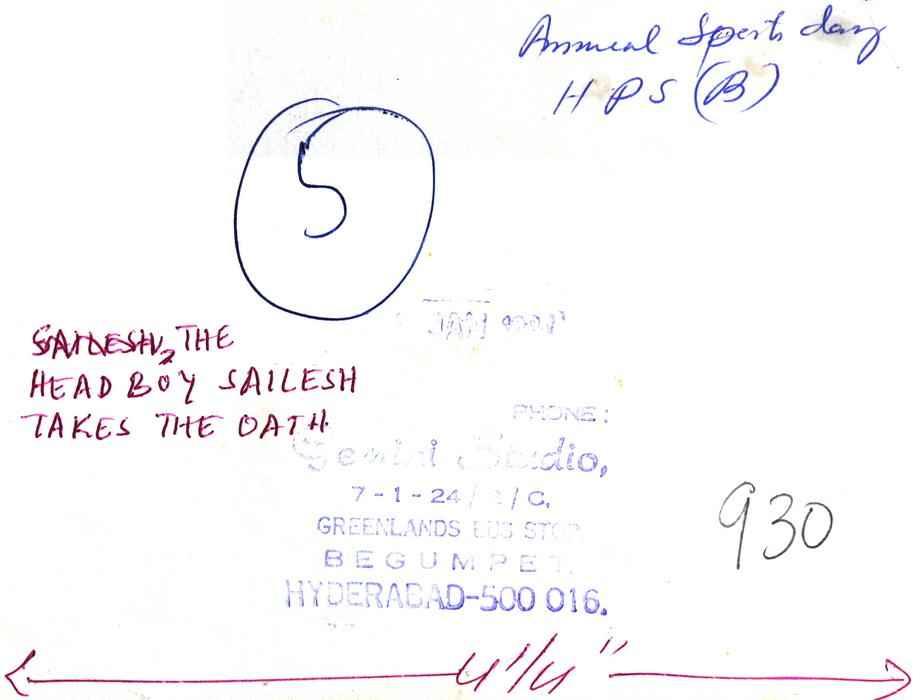 Annual Sports day
H P S (B)
5
THE
HEAD BOY SAILESH
TAKES THE OATH
JAN
PHONE:
Gemini Studio,
7-1-24/ /C,
GREENLANDS BUS STOP
BEGUMPET.
HYDERABAD-500 016.
930
4"